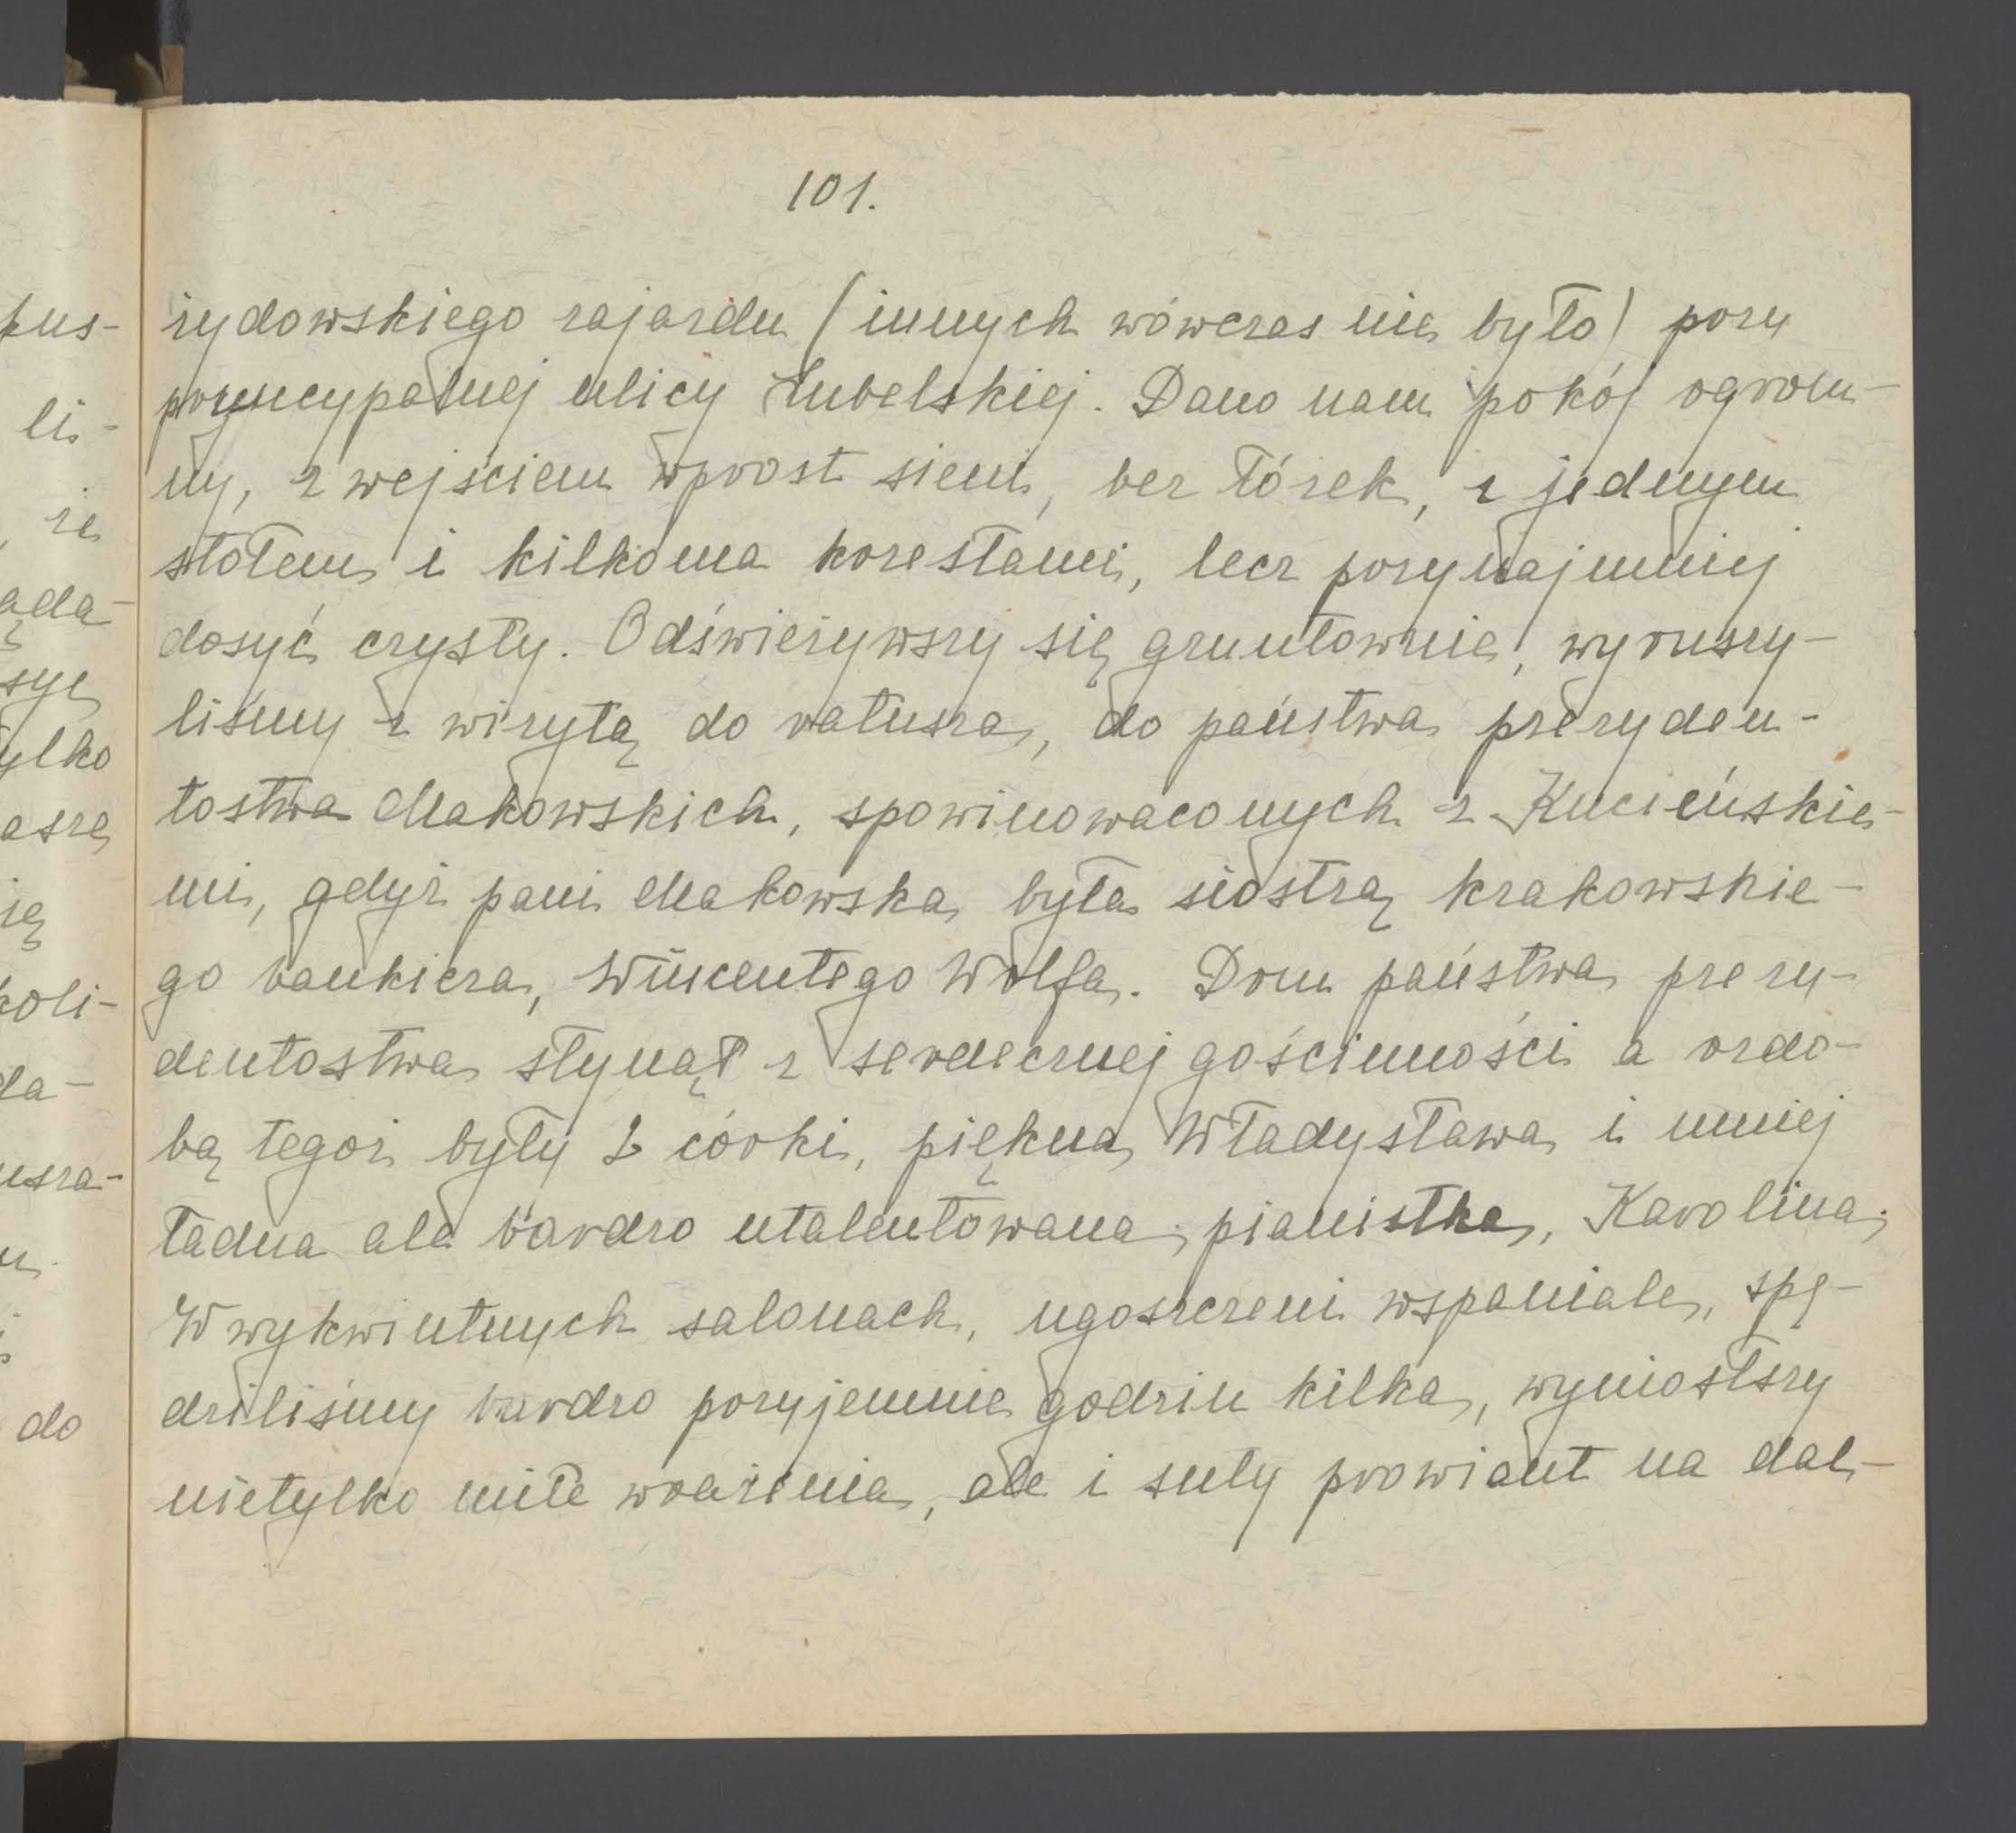 101.
żydowskiego zajazdu (innych wówczas nie było) przy
pryncypalnej ulicy Lubelskiej. Dano nam pokój ogrom-
ny, z wejściem wprost sieni, bez łóżek, z jednym
stołem i kilkoma krzesłami, lecz przynajmniej
dosyć czysty. Odświeżywszy się gruntownie, wyruszy-
liśmy z wizytą do ratusza, do państwa prezyden-
tostwa Makowskich, spowinowaconych z Kucieńskie-
mi, gdyż pani Makowska, była siostrą krakowskie-
go bankiera, Wincentego Wolfa. Dom państwa prezy-
dentostwa słynął z serdecznej gościnności a ozdo-
bą tegoż były 2 córki, piękna Władysława i mniej
ładna ale bardzo utalentowana pianistka, Karolina.
W wykwintnych salonach, ugoszczeni wspaniale, spę-
dziliśmy bardzo przyjemnie godzin kilka, wyniósłszy
nietylko miłe wrażenia, ale i suty prowiant na dal-
pus-
li-
że
ąda-
syę
ylko
asze
ię
koli-
da-
usza-
do